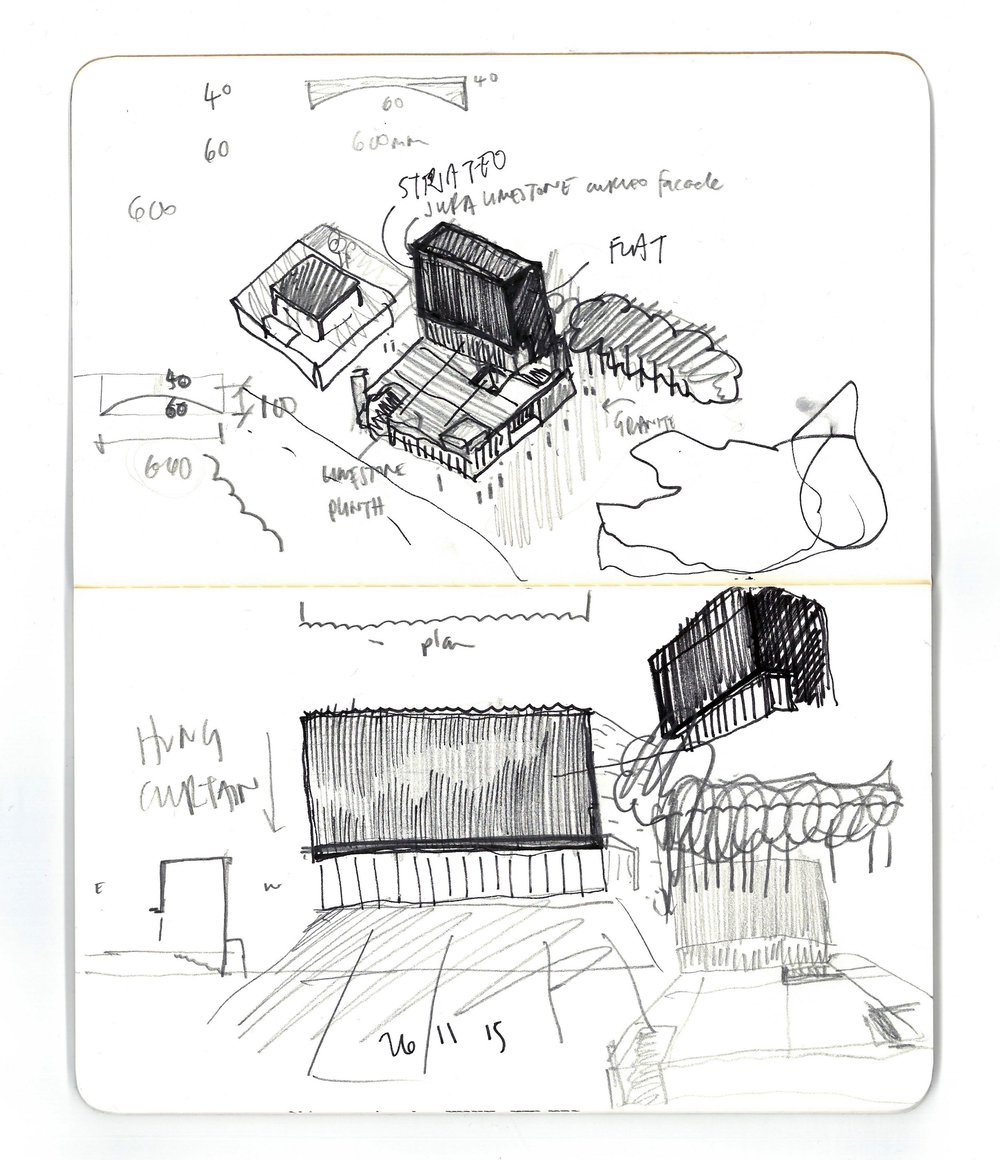 40
40
60
60
600mm
STRIATED
JURA LIMESTONE CURVED facade
600
FLAT
40
60
100
GRANITE
600
LIMESTONE
PLINTH
plan
HUNG
CURTAIN
E
W
26 11 15